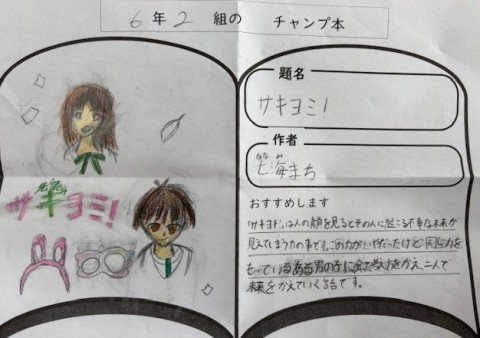 6年2組の チャンプ本
サキヨミ!
題名
サキヨミ!
作者
七海まち
おすすめします
「サキヨミ」は人の顔を見るとその人に起こる不幸な未来が
見えてしまう力の事です。この力がいやだったけど同じ力を
もっているある男の子に会て考え方をかえ二人で
未来をかえていく話です。